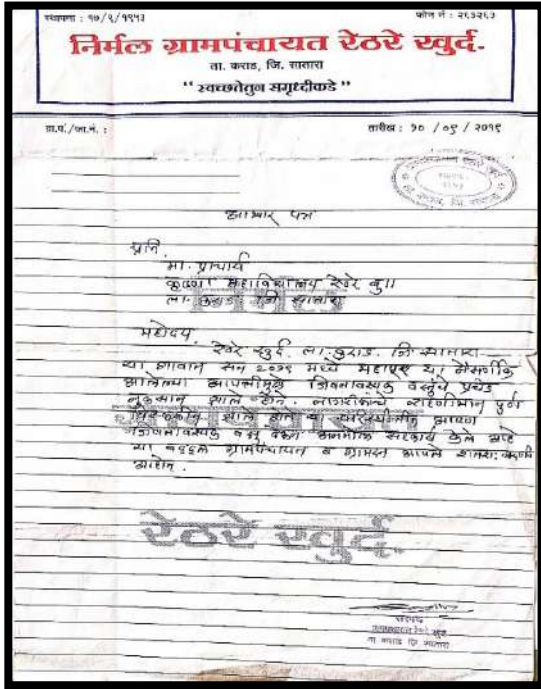 स्थापना : १७/९/१९५३ फोन नं : २६३२६३
निर्मल ग्रामपंचायत रेठरे खुर्द.
ता. कराड, जि. सातारा
“ स्वच्छतेतुन समृध्दीकडे ”
ग्रा.पं./जा.नं. : तारीख : १० / ०९ / २०१९
आभार पत्र
प्रति,
मा. प्राचार्य
कृष्णा महाविद्यालय रेठरे बु॥
ता. कराड जि सातारा
महोदय,
रेठरे खुर्द. ता. कराड. जि. सातारा
या गावात सन २०१९ मध्ये महापूर या नैसर्गिक
आलेल्या आपत्तीमुळे जिवनावश्यक वस्तूंचे प्रचंड
नुकसान झाले होते. नागरीकांचे राहणीमान पुर्ण
झाले होते या परिस्थितीत आपण
जिवनावश्यक वस्तू देऊन अनमोल सहकार्य केले आहे
त्या बद्दल ग्रामपंचायत व ग्रामस्थ आपले शतशः ऋणी
आहोत.
निर्मल
ग्रामपंचायत
रेठरे खुर्द.
सरपंच
ग्रामपंचायत रेठरे खुर्द
ता कराड जि सातारा